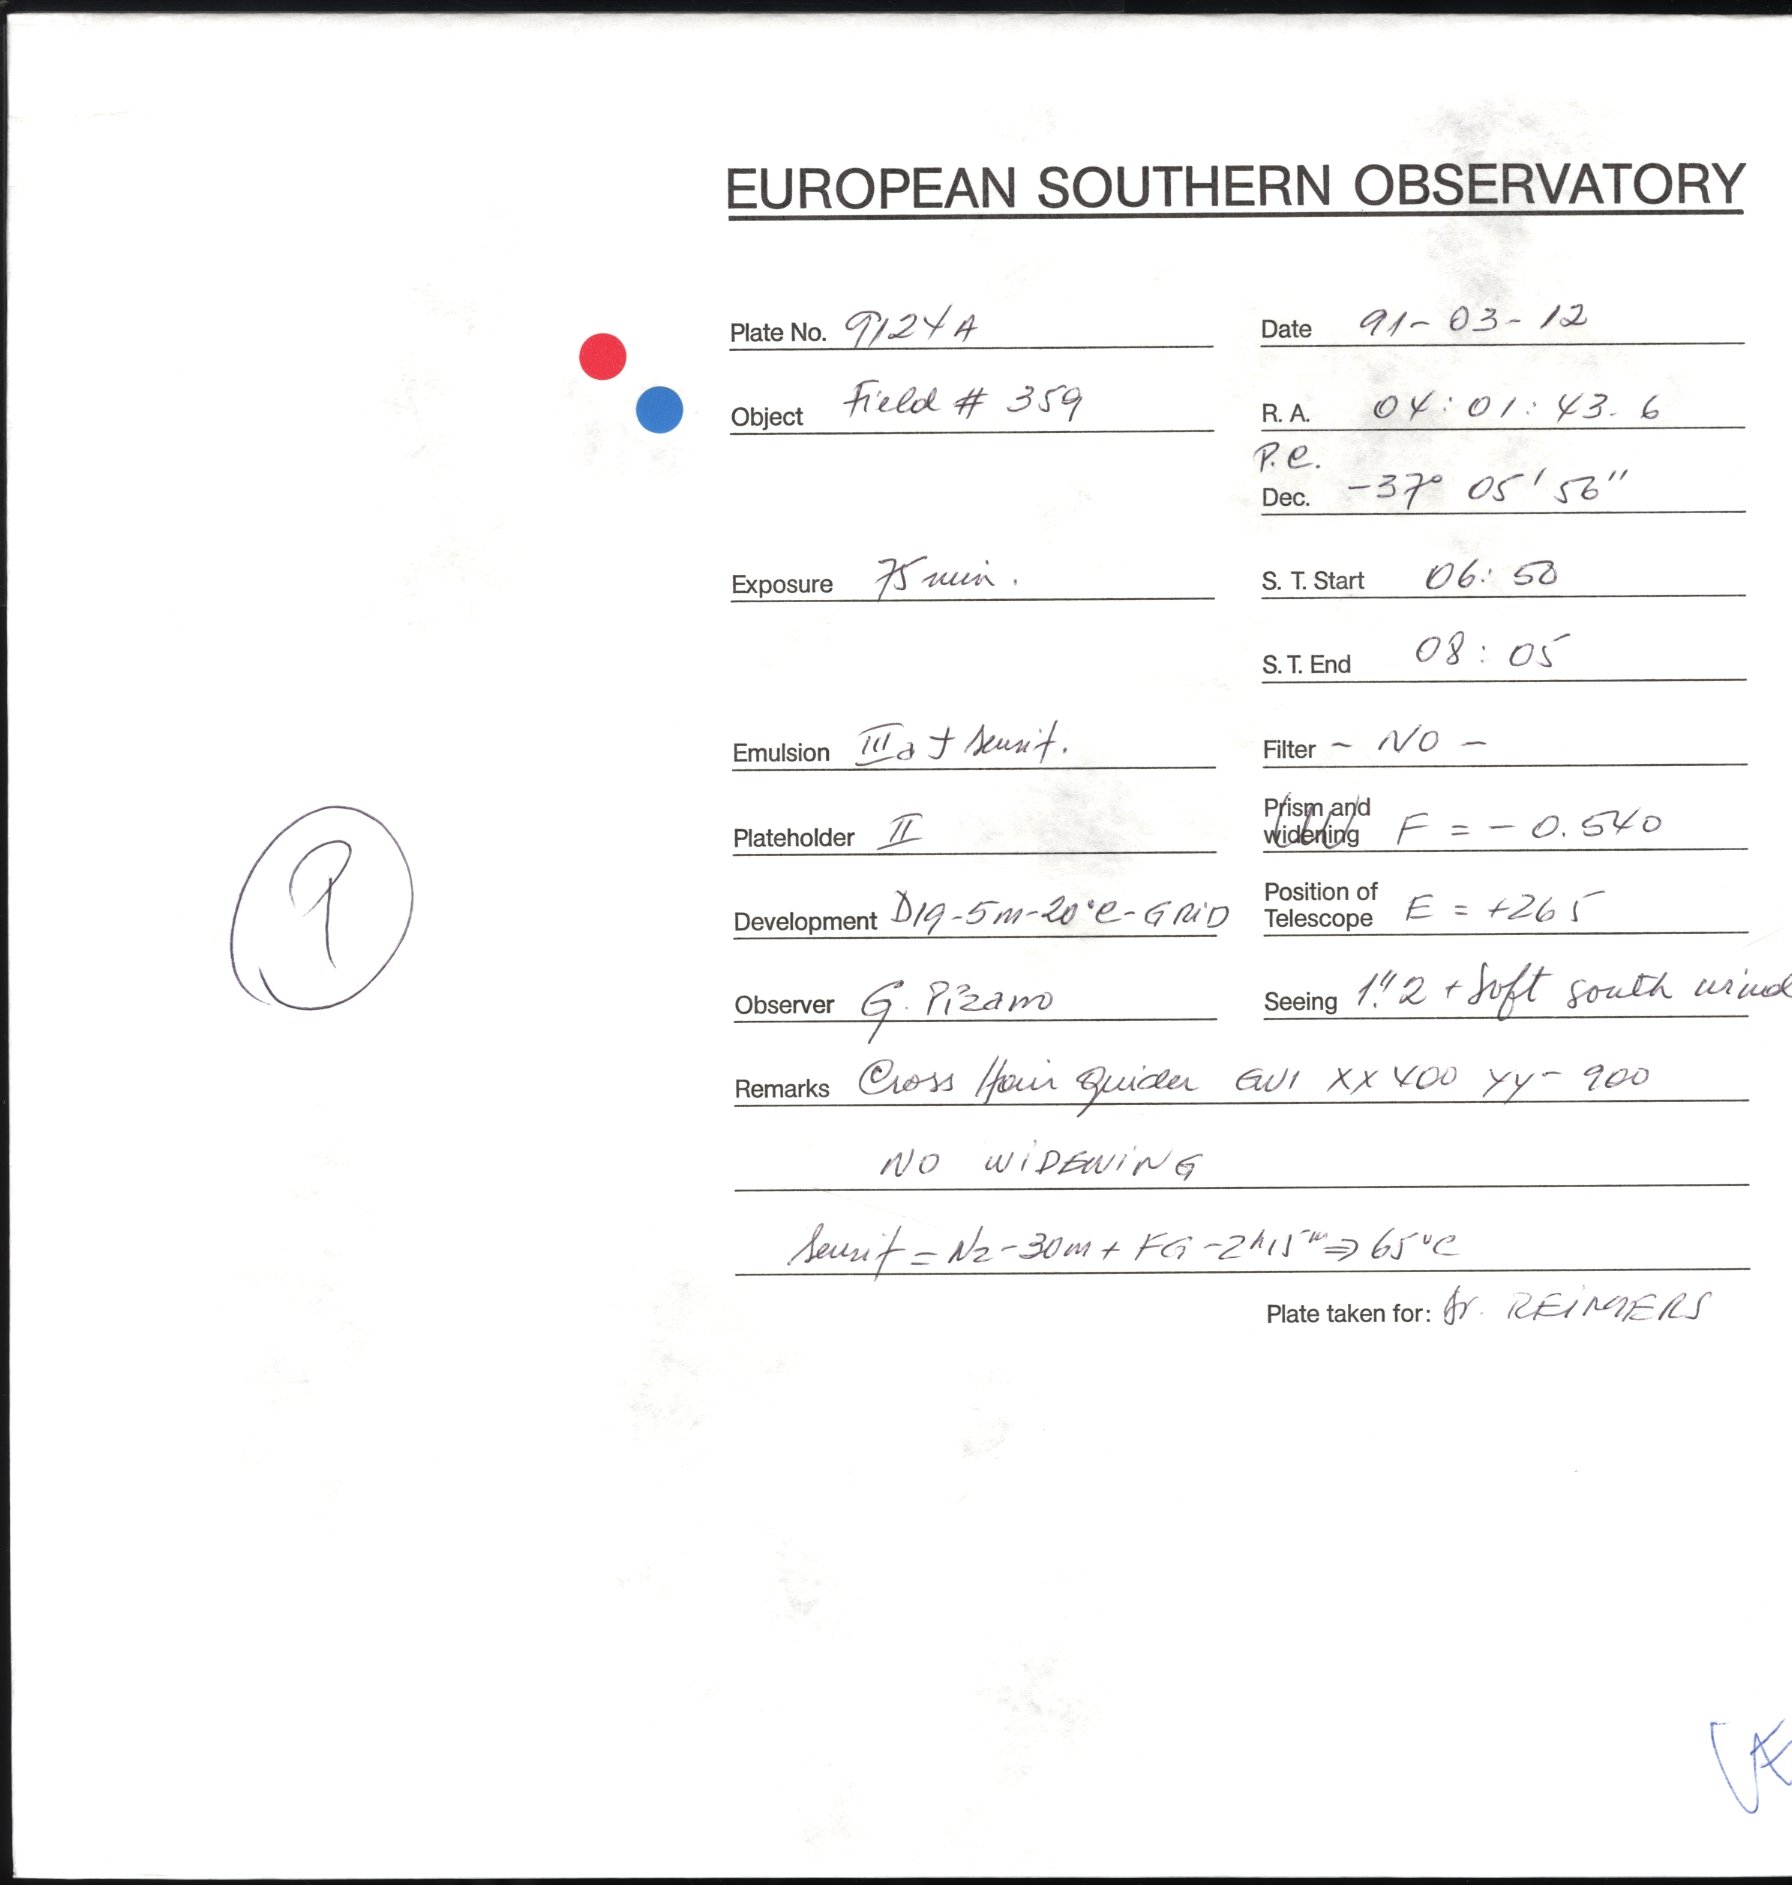 EUROPEAN SOUTHERN OBSERVATORY
Plate No. 9124A Date 91-03-12
Object Field # 359 R. A. 04:01:43.6
P.C.
Dec. -37° 05' 56"
Exposure 75 min. S. T. Start 06:50
S. T. End 08:05
Emulsion IIIaJ sensit. Filter - NO -
Plateholder II Prism and widening F = -0.540
Development D19-5m-20°C-GRID Position of Telescope E = +265
Observer G. Pizarro Seeing 1."2 + Soft south wind
Remarks Cross Hair guider GW1 XX 400 YY- 900
NO WIDENING
Sensit = N2-30m + FG-2h15m => 65°C
Plate taken for: Dr. REIMERS